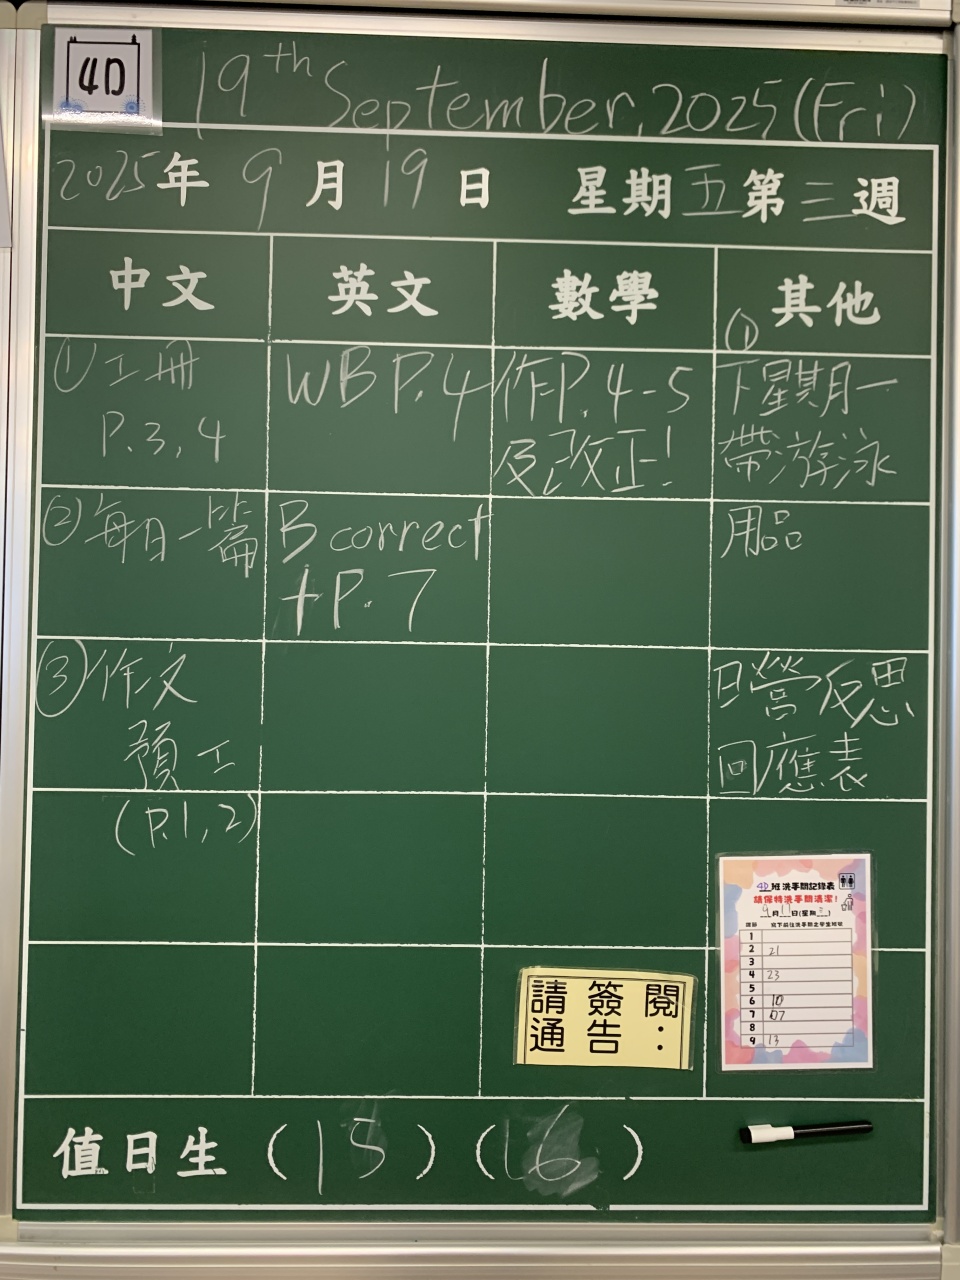 4D
19th September, 2025 (Fri)
2025年 9月 19日 星期五第三週
中文
英文
數學
其他
① 工冊
P.3, 4
② 每日一篇
③ 作文
預工
(P.1, 2)
WB P.4
B correct
+ P. 7
作P. 4-5
及改正!
①
下星期一
帶游泳
用品
日營反思
回應表
4D班洗手間記錄表
請保持洗手間清潔!
9月11日(星期三)
1
2 21
3
4 23
5
6 10
7 07
8
9 13
請簽閱
通告:
值日生 (15) (16)